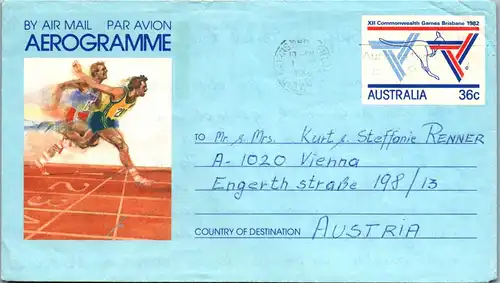 BY AIR MAIL PAR AVION
AEROGRAMME
XII Commonwealth Games Brisbane 1982
AUSTRALIA 36c
TO Mr & Mrs. Kurt & Steffanie RENNER
A-1020 Vienna
Engerth straße 198/13
COUNTRY OF DESTINATION AUSTRIA